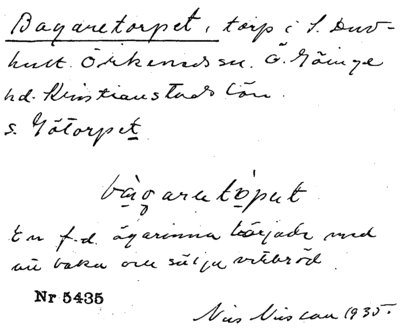 Bagaretorpet, torp i S. Duv-
hult. Örkeneds sn. Ö. Göinge
hd. Kristianstads län.
s. Götorpet
bagaretȯput
En f.d. ägarinna började med
att baka och sälja vetebröd.
Nr 5435
Nils Nilsson 1935.